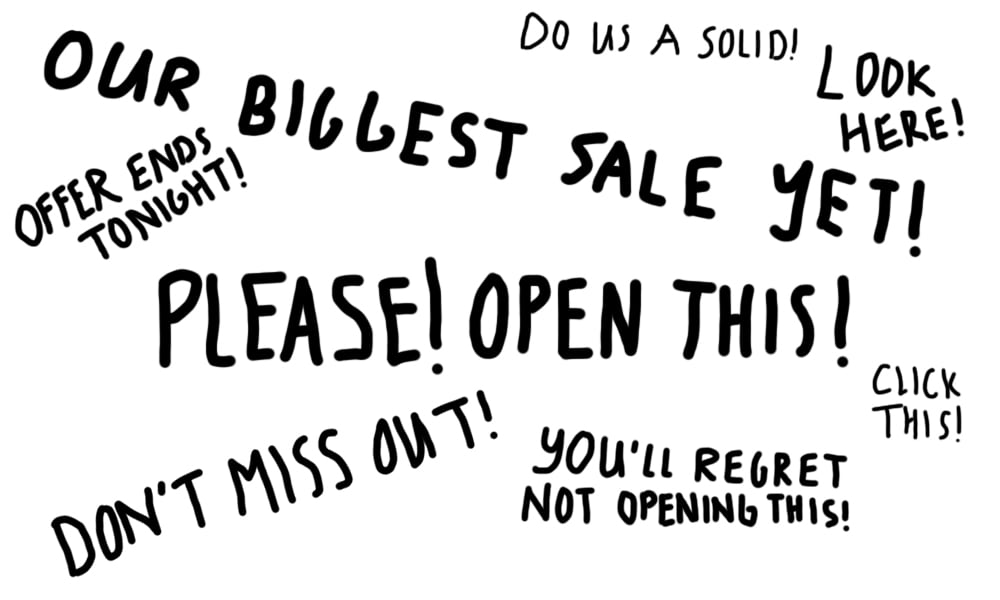 DO US A SOLID!
OUR BIGGEST SALE YET!
LOOK
HERE!
OFFER ENDS
TONIGHT!
PLEASE! OPEN THIS!
CLICK
THIS!
DON'T MISS OUT!
YOU'LL REGRET
NOT OPENING THIS!